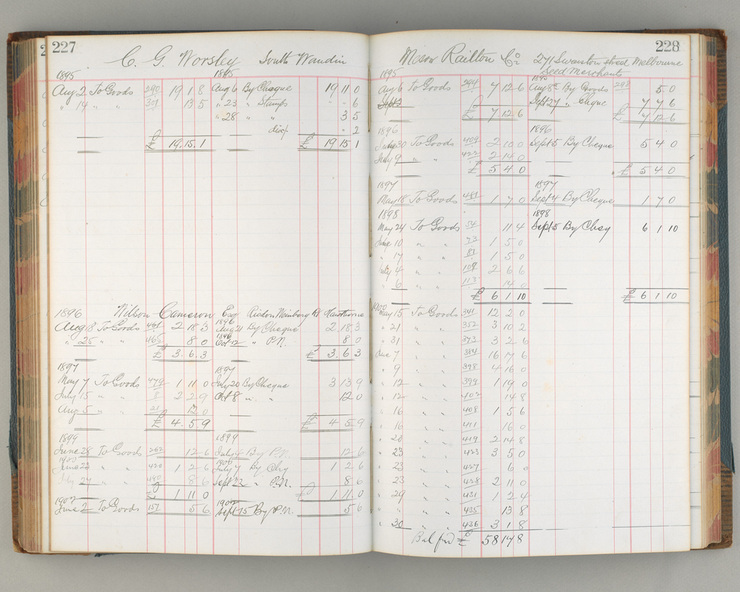 227
C. G. Worsley South Wandin
1895 1895
Aug 2 To Goods 19 1 8 Aug 6 By Cheque 19 11 0
" 19 " " 13 5 " 23 " Stamps - 6
" 28 " " 3 5
disc - 2
£ 19 15 1 £ 19 15 1
1896 Wilson Cameron Esq
1896
Aug 8 To Goods 2 18 3 Aug 21 By Cheque 2 18 3
" 25 " " 165 8 0 Oct 12 " P.N. 8 0
£ 3 6 3 £ 3 6 3
1897 1897
May 7 To Goods 1 11 0 July 20 By Cheque 3 13 9
July 15 " " 2 2 9 Oct 8 " " 12 0
Aug 5 " " 12 0
£ 4 5 9 £ 4 5 9
1899 1899
June 28 To Goods 12 6 July By P.N. 12 6
June 22 " " 1 2 6 July 7 By Chq 1 2 6
24 " " 8 6 Sept 22 " P.N. 8 6
£ 1 11 0 £ 1 11 0
1902 1902
June 2 To Goods 151 5 6 Sept 15 By P.N. 5 6
228
Messrs Railton & Co 271 Swanston street Melbourne
Seed Merchants
1895 1895
Aug 6 to Goods 7 12 6 Aug 8 By Goods 5 0
Sept 2 Sept 27 " cheque 7 7 6
£ 7 12 6 £ 7 12 6
1896 1896
July 30 To Goods 409 2 10 0 Sept 5 By Cheque 5 4 0
" 9 " " 2 14 0
£ 5 4 0 £ 5 4 0
1897 1897
Aug 18 To Goods 1 7 0 Sept 4 By Cheque 1 7 0
1898 1898
May 24 To Goods 11 4 Sept 5 By Chq 6 1 10
10 " " 1 5 0
" 17 " " 1 5 0
4 " " 2 6 6
" 6 " "
£ 6 1 10 £ 6 1 10
May 15 To Goods 341 12 2 0
" 21 " " 352 3 10 2
" 31 " " 373 3 2 6
June 7 " " 384 16 17 6
" 9 " " 395 4 16 0
" 12 " " 399 1 19 0
" 12 " " 402 14 8
" 16 " " 408 1 5 6
" 16 " " 411 16 0
" 20 " " 419 2 14 8
" 23 " " 423 3 5 0
" 23 " " 427 6 0
" 23 " " 428 2 11 0
" 29 " " 431 1 2 4
" " " 425 13 8
" 30 " " 426 3 1 8
Bal fwd £ 58 17 8